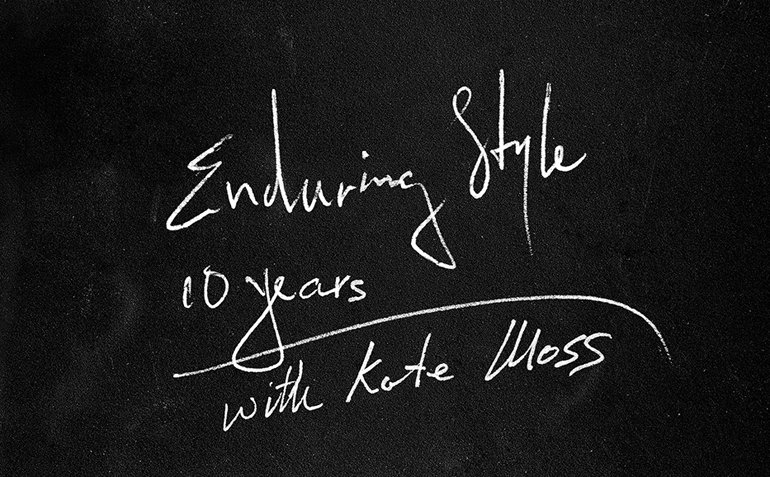 Enduring Style
10 years
with Kate Moss